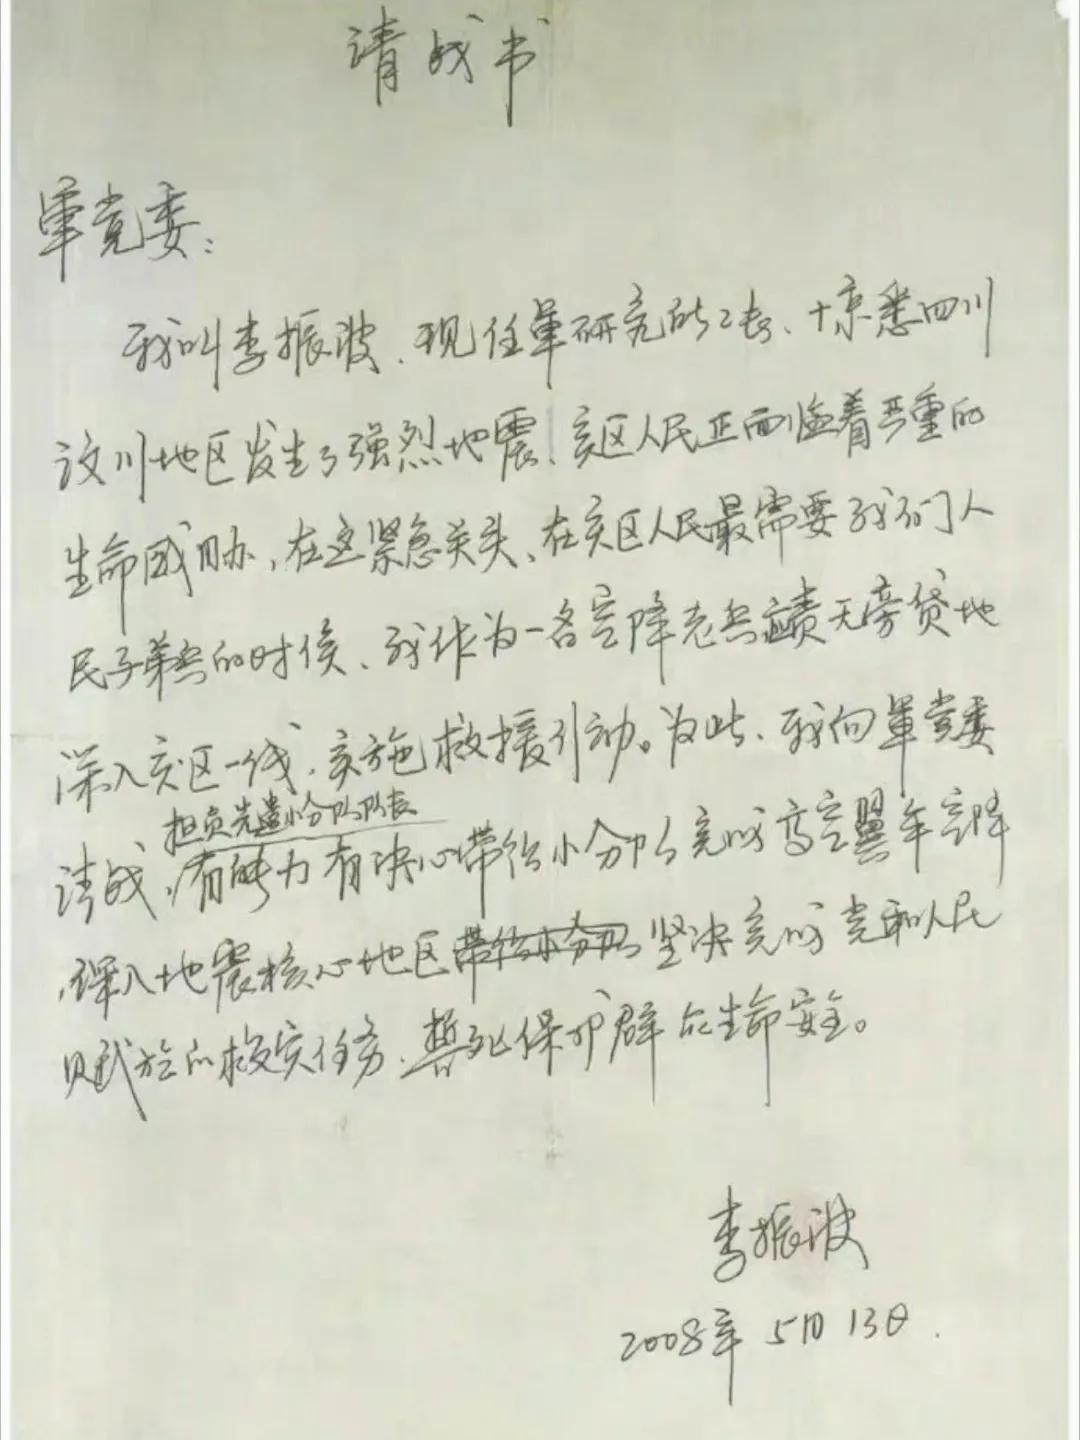 请战书
军党委：
我叫李振波、现任军研究所所长、惊悉四川
汶川地区发生了强烈地震、灾区人民正面临着严重的
生命威胁，在这紧急关头、在灾区人民最需要我们人
民子弟兵的时候、我作为一名空降老兵责无旁贷地
深入灾区一线，实施救援行动。为此、我向军党委
担负先遣小分队队长
请战，有能力有决心带领小分队完成高空翼伞空降
，深入地震核心地区带领小分队坚决完成党和人民
赋于的救灾任务，誓死保护群众生命安全。
李振波
2008年 5月 13日.